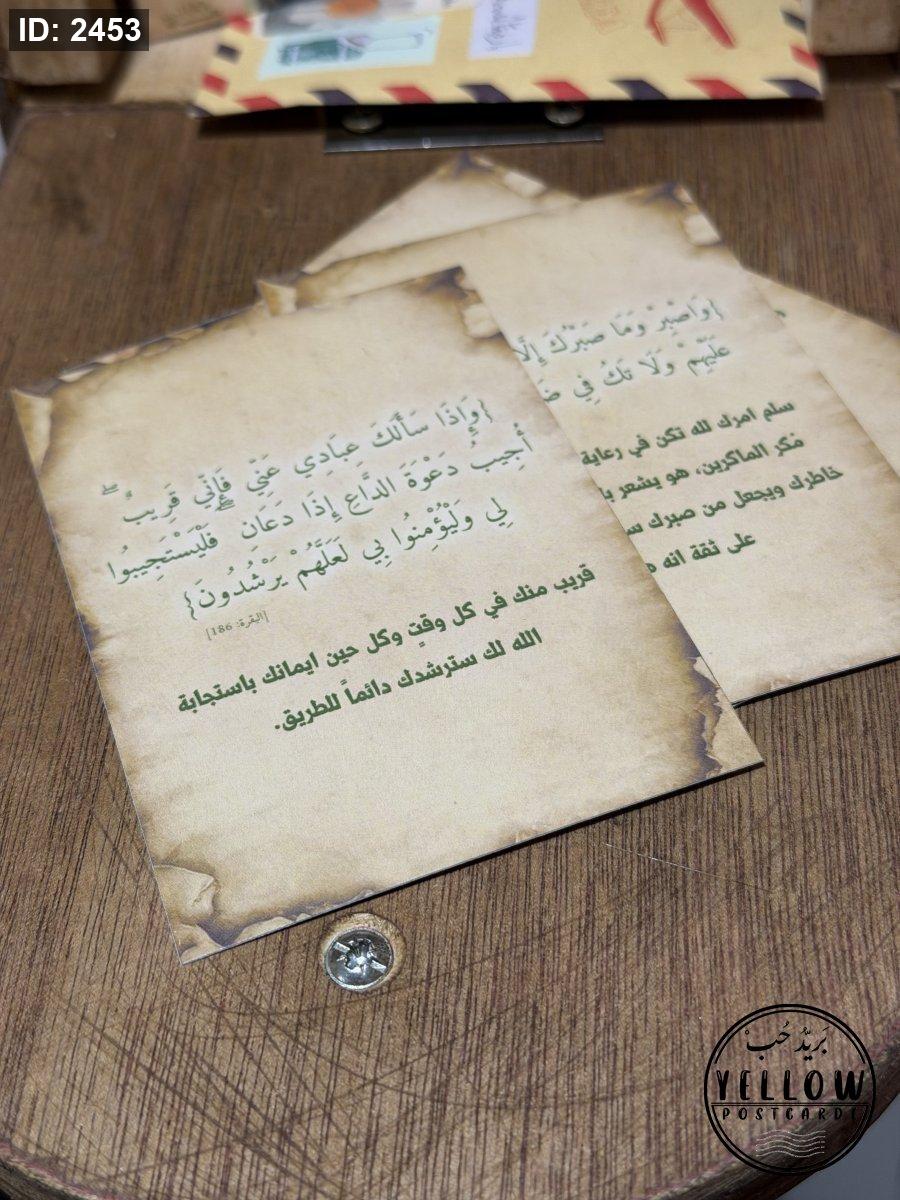 ID: 2453
{وَإِذَا سَأَلَكَ عِبَادِي عَنِّي فَإِنِّي قَرِيبٌ ۖ
أُجِيبُ دَعْوَةَ الدَّاعِ إِذَا دَعَانِ ۖ فَلْيَسْتَجِيبُوا
لِي وَلْيُؤْمِنُوا بِي لَعَلَّهُمْ يَرْشُدُونَ}
[البقرة: 186]
قريب منك في كل وقتٍ وكل حين ايمانك باستجابة
الله لك سترشدك دائماً للطريق.
{وَاصْبِرْ وَمَا صَبْرُكَ إِلَّا
عَلَيْهِمْ وَلَا تَكُ فِي
سلم امرك لله تكن في رعاية
مَكر الماكرين، هو يشعر
خاطرك ويجعل من صبرك
على ثقة انه
بَرِيدُ حُبْ
YELLOW
POSTCARDS